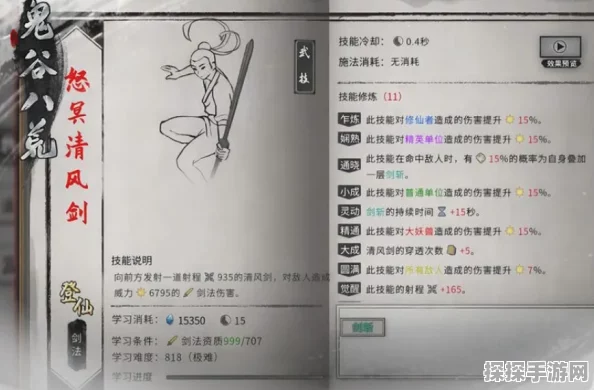 鬼谷八荒
怒冥清风剑
登仙
剑法
武技
技能说明
向前方发射一道射程 935的清风剑，对敌人造成
威力 6795的 剑法伤害。
学习消耗： 15350 15
学习条件： 剑法资质999/707
学习难度：818（极难）
学习进度
技能冷却： 0.4秒
施法消耗：无消耗
效果预览
技能修炼（11）
乍炼 此技能对修仙者造成的伤害提升 15%。
娴熟 此技能对精英单位造成的伤害提升 15%。
通晓 此技能在命中敌人时，有 15%的概率为自身叠加
一层剑斩。
小成 此技能对普通单位造成的伤害提升 15%。
灵动 剑斩的持续时间 +15秒。
精通 此技能对大妖兽造成的伤害提升 15%。
大成 清风剑的穿透次数 +5。
圆满 此技能对所有敌人造成的伤害提升 7%。
觉醒 此技能的射程 +165。
剑斩
探探手游网